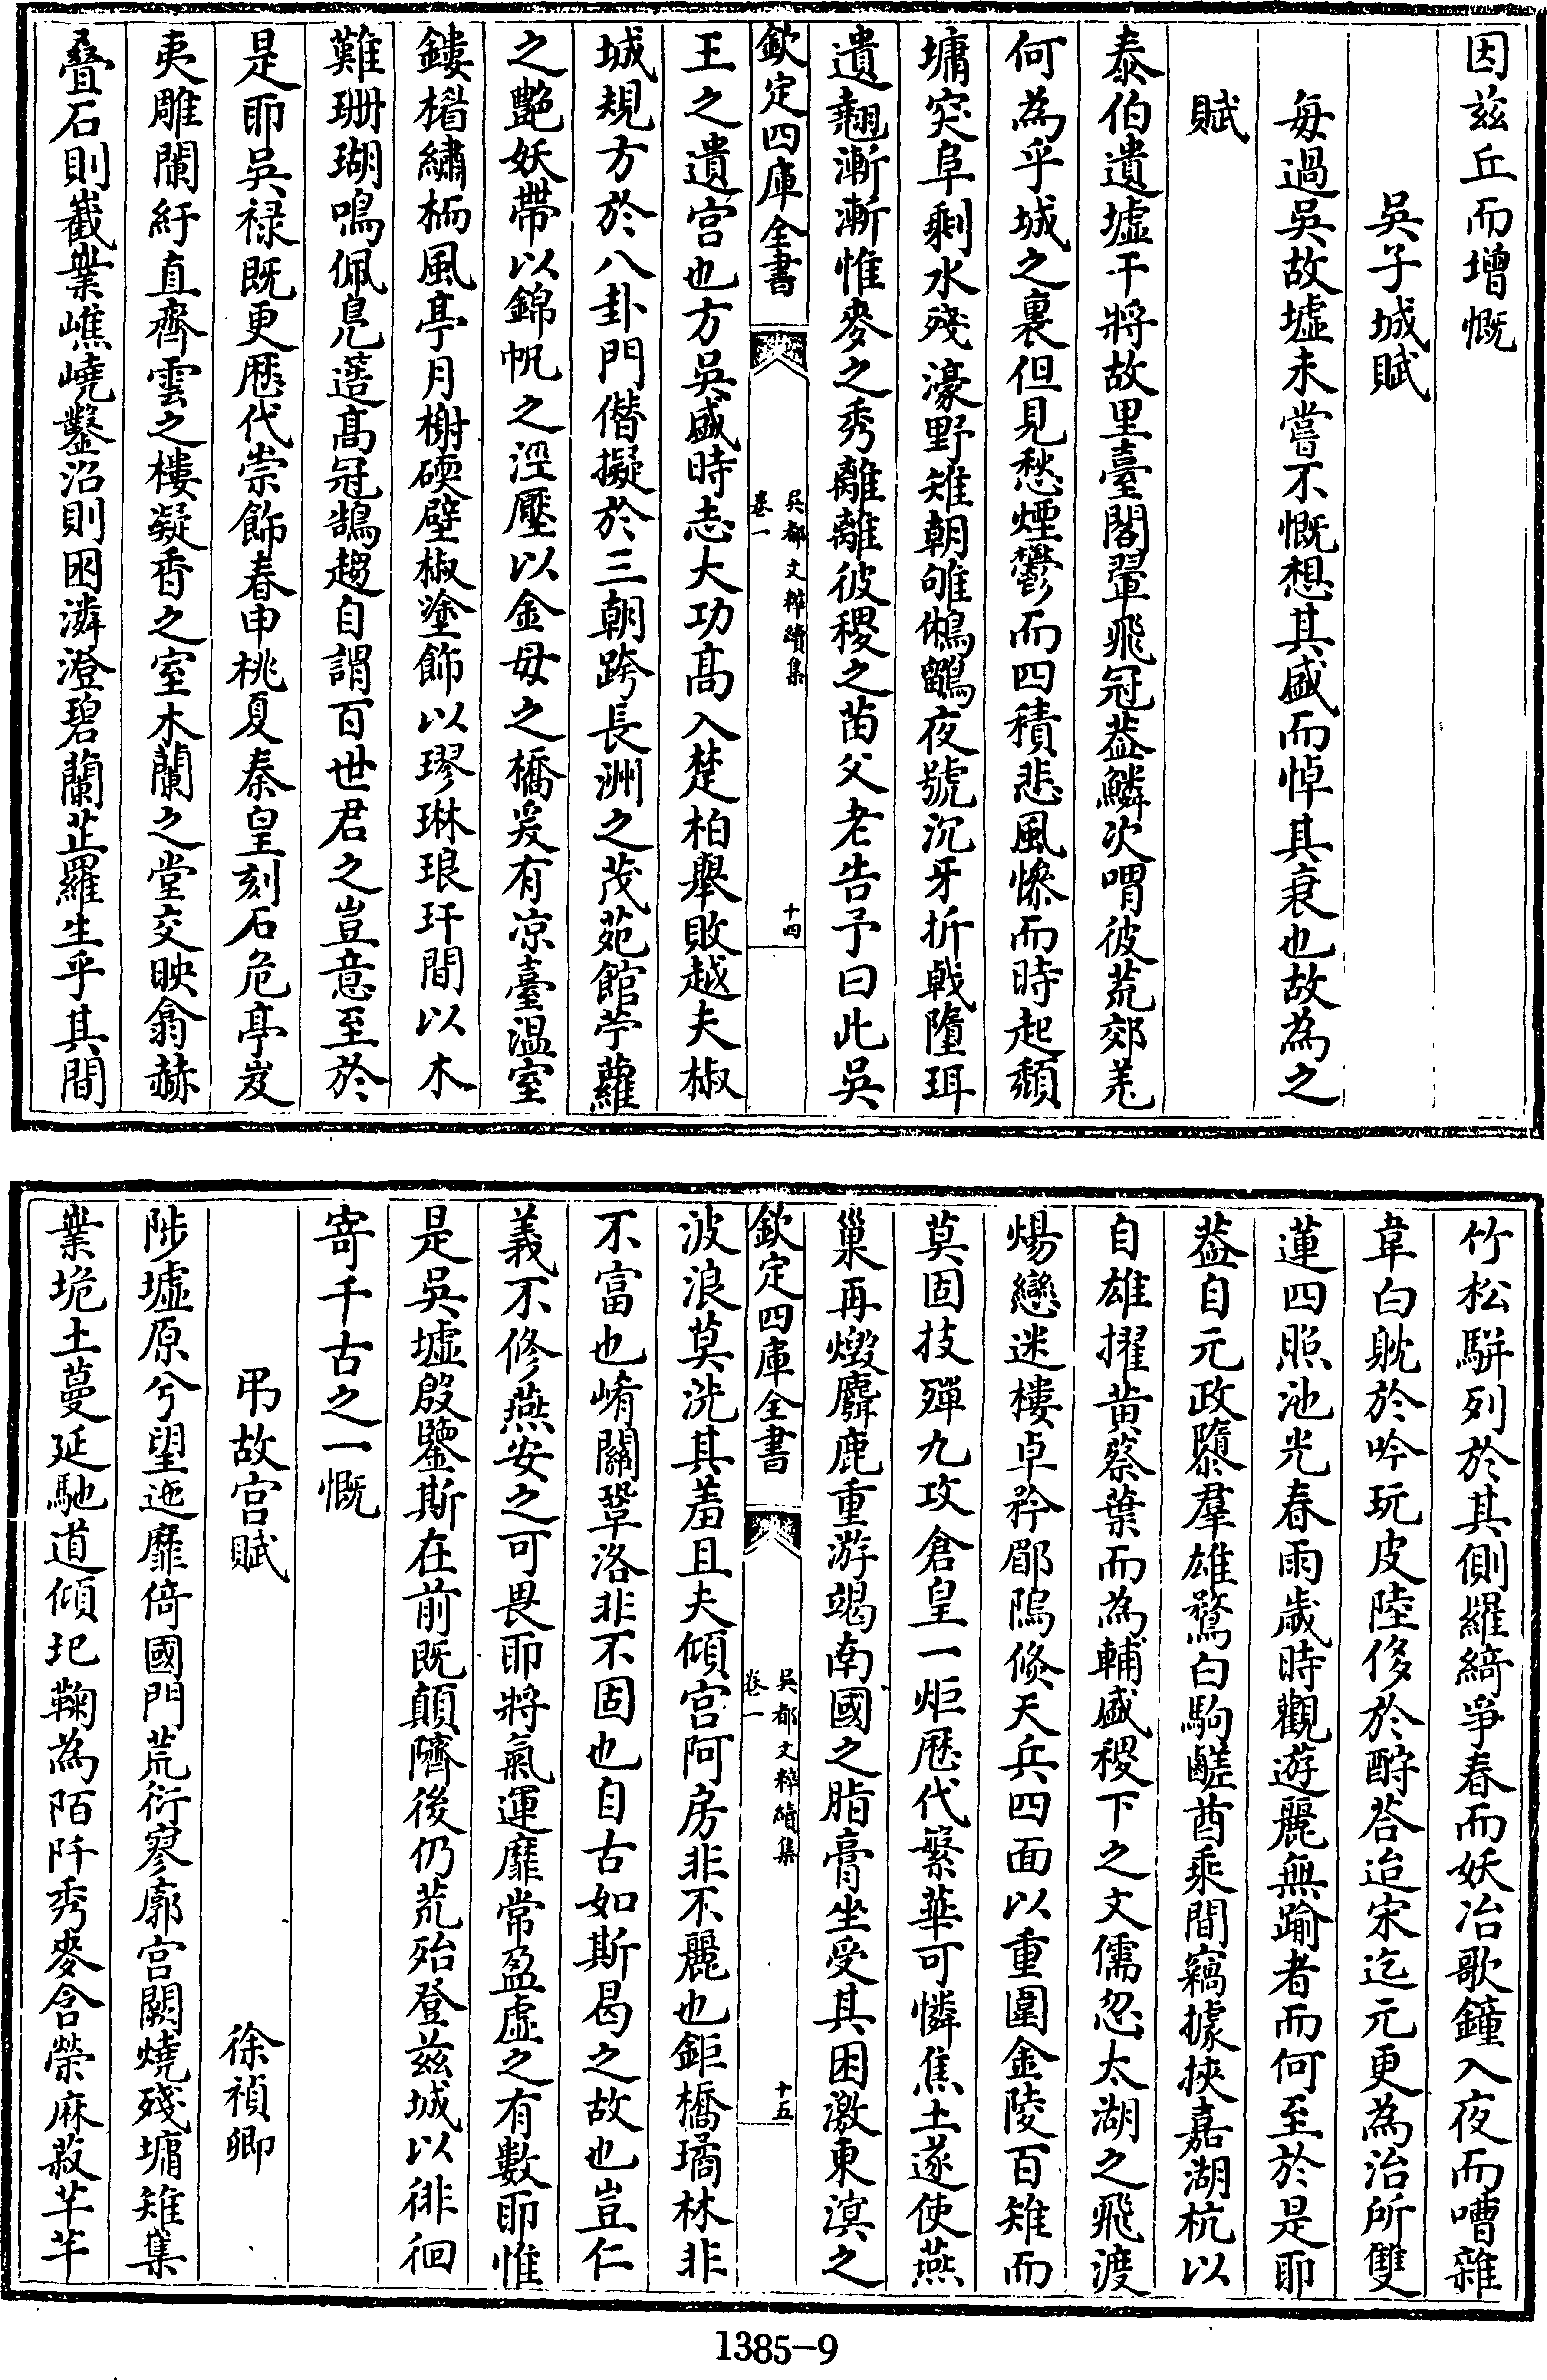 因茲丘而增慨
吳子城賦
毎過吳故墟未嘗不慨想其盛而悼其衰也故為之
賦
泰伯遺墟干將故里臺閣翬飛冠葢鱗次喟彼荒郊羌
何為乎城之裏但見愁煙鬱而四積悲風慘而時起頽
墉突阜剩水殘濠野雉朝雊鵂鶹夜號沉牙折戟墮珥
遺翹漸漸惟麥之秀離離彼稷之苗父老告予曰此吳
欽定四庫全書
吳都文粹續集
卷一
十四
王之遺宫也方吳盛時志大功髙入楚柏舉敗越夫椒
城規方於八卦門僭擬於三朝跨長洲之茂苑館苧蘿
之艷妖帶以錦帆之涇壓以金母之橋爰有凉臺温室
鏤楷繡栭風亭月榭碝壁椒塗飾以璆琳琅玕間以木
難珊瑚鳴佩鳬䔰髙冠鵠趨自謂百世君之豈意至於
是耶吳禄既更歴代崇飾春申桃夏秦皇刻石危亭岌
夷雕闌紆直齊雲之樓凝香之室木蘭之堂交映翕赫
叠石則嶻嶪嶕嶢鑿沼則困潾澄碧蘭芷羅生乎其間
竹松駢列於其側羅綺爭春而妖冶歌鐘入夜而嘈雜
韋白躭於吟玩皮陸侈於酧荅迨宋迄元更為治所雙
蓮四照池光春雨歲時觀遊麗無踰者而何至於是耶
葢自元政隳羣雄騖白駒鹺酋乘間竊據挾嘉湖杭以
自雄擢黄蔡葉而為輔盛稷下之文儒忽太湖之飛渡
煬戀迷樓卓矜郿隖倐天兵四面以重圍金陵百雉而
莫固技殫九攻倉皇一炬歴代繁華可憐焦土遂使燕
巢再燬麝鹿重游竭南國之脂膏坐受其困激東溟之
欽定四庫全書
吳都文粹續集
卷一
十五
波浪莫洗其羞且夫傾宫阿房非不麗也鉅橋璚林非
不富也崤關鞏洛非不固也自古如斯曷之故也豈仁
義不修燕安之可畏耶將氣運靡常盈虚之有數耶惟
是吳墟殷鑒斯在前既顛隮後仍荒殆登兹城以徘徊
寄千古之一慨
弔故宫賦
徐禎卿
陟墟原兮望迤靡倚國門荒衍寥廓宫闕燒殘墉雉集
業垝土蔓延馳道傾圮鞠為陌阡秀麥含榮麻菽芊芊
1385-9